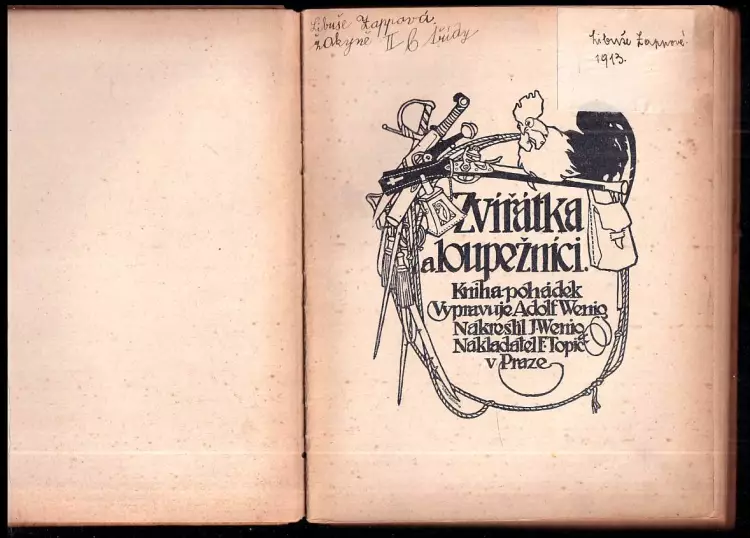 Libuše Zappová.
žákyně II b třídy
Libuše Zappové.
1913.
Zvířátka
a loupežníci.
Kniha pohádek
Vypravuje Adolf Wenig
Nakreslil J. Wenig
Nakladatel F. Topič
v Praze